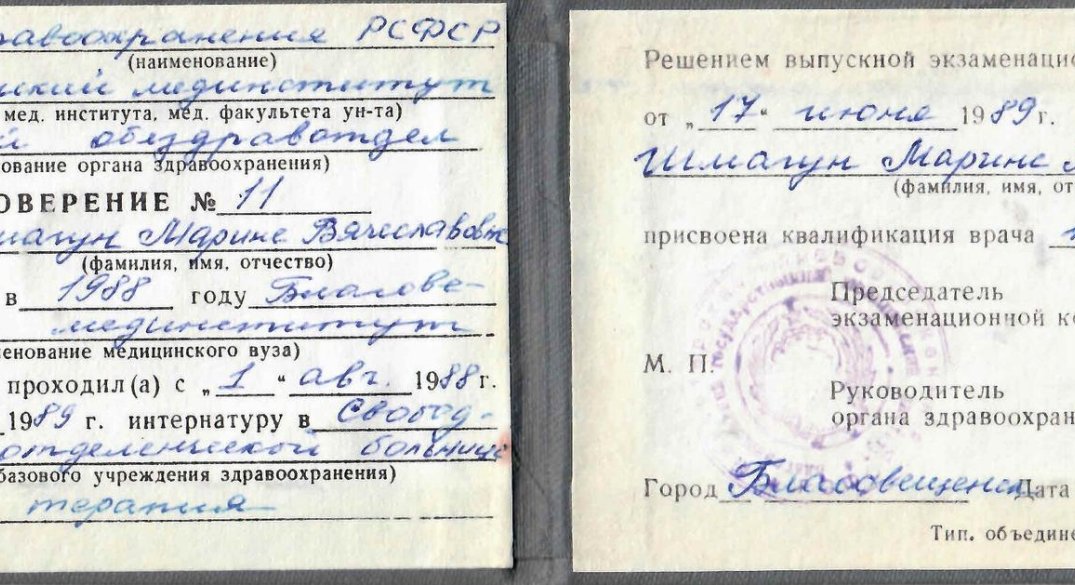 равоохранения РСФСР
(наименование)
нский мединститут
мед. института, мед. факультета ун-та)
й облздравотдел
ование органа здравоохранения)
ОВЕРЕНИЕ № 11
магун Марине Вячеславовн
(фамилия, имя, отчество)
в 1988 году Благове-
мединститут
енование медицинского вуза)
проходил(а) с „1“ авг. 1988 г.
1989 г. интернатуру в Свобод-
отделенческой больнице
базового учреждения здравоохранения)
терапия
Решением выпускной экзаменацио
от „17“ июня 1989 г.
Шмагун Марине
(фамилия, имя, от
присвоена квалификация врача
Председатель
экзаменационной к
М. П.
Руководитель
органа здравоохран
Город Благовещенск Дата
Тип. объедине